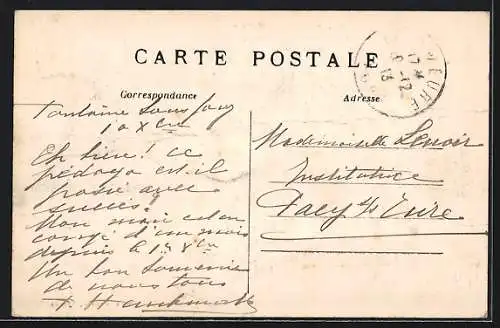 CARTE POSTALE
Correspondance
Adresse
EURE
17
8-12
13
Fontaine sous Jouy
10 Xbre
Eh bien! ce
pédago est-il
passé avec
succès?
Mon mari est en
congé d'un mois
depuis le 1er Xbre
Un bon souvenir
de nous tous
Mademoiselle Lenoir
Institutrice
Pacy s/ Eure